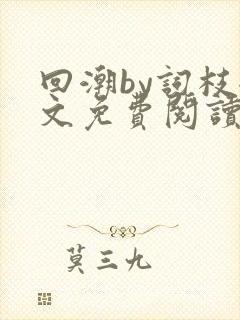 回潮by詞枝
文免費閱讀
莫三九